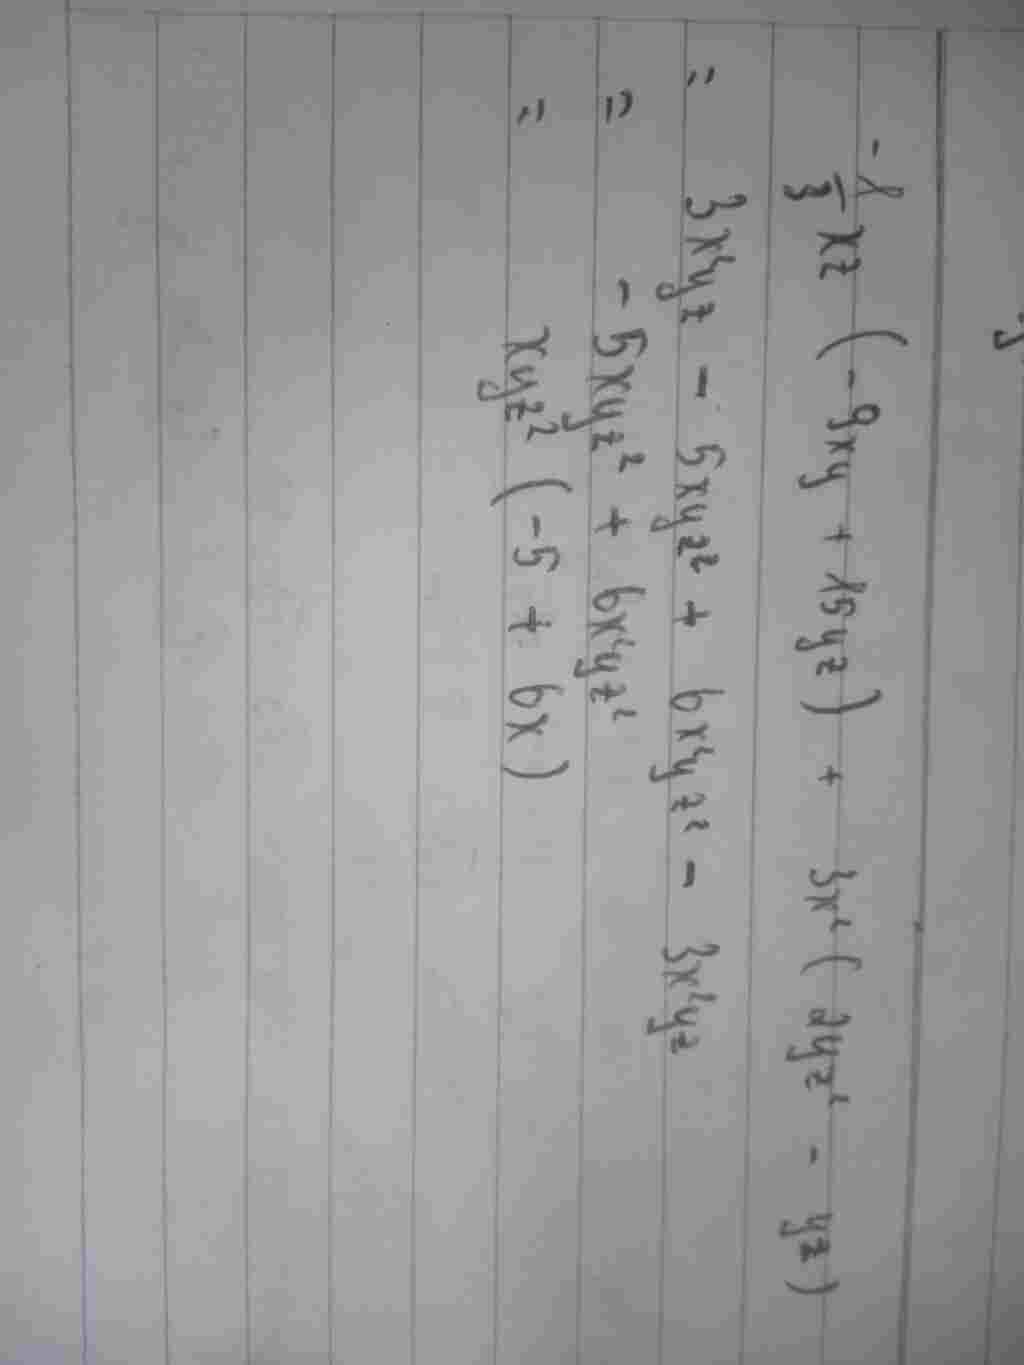 -1/3 xz (-9xy + 15yz) + 3x² (2yz² - yz)
= 3x²yz - 5xyz² + 6x²yz² - 3x²yz
= -5xyz² + 6x²yz²
= xyz² (-5 + 6x)